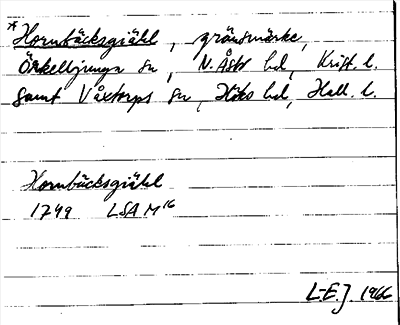 * Hornbäcksgiähl, gränsmärke,
Örkelljunga sn, N. Åsbo hd, Krist. l.
samt Våxtorps sn, Höks hd, Hall. l.
Hornbäcksgiähl
1749 LSA M16
L-E.J. 1966